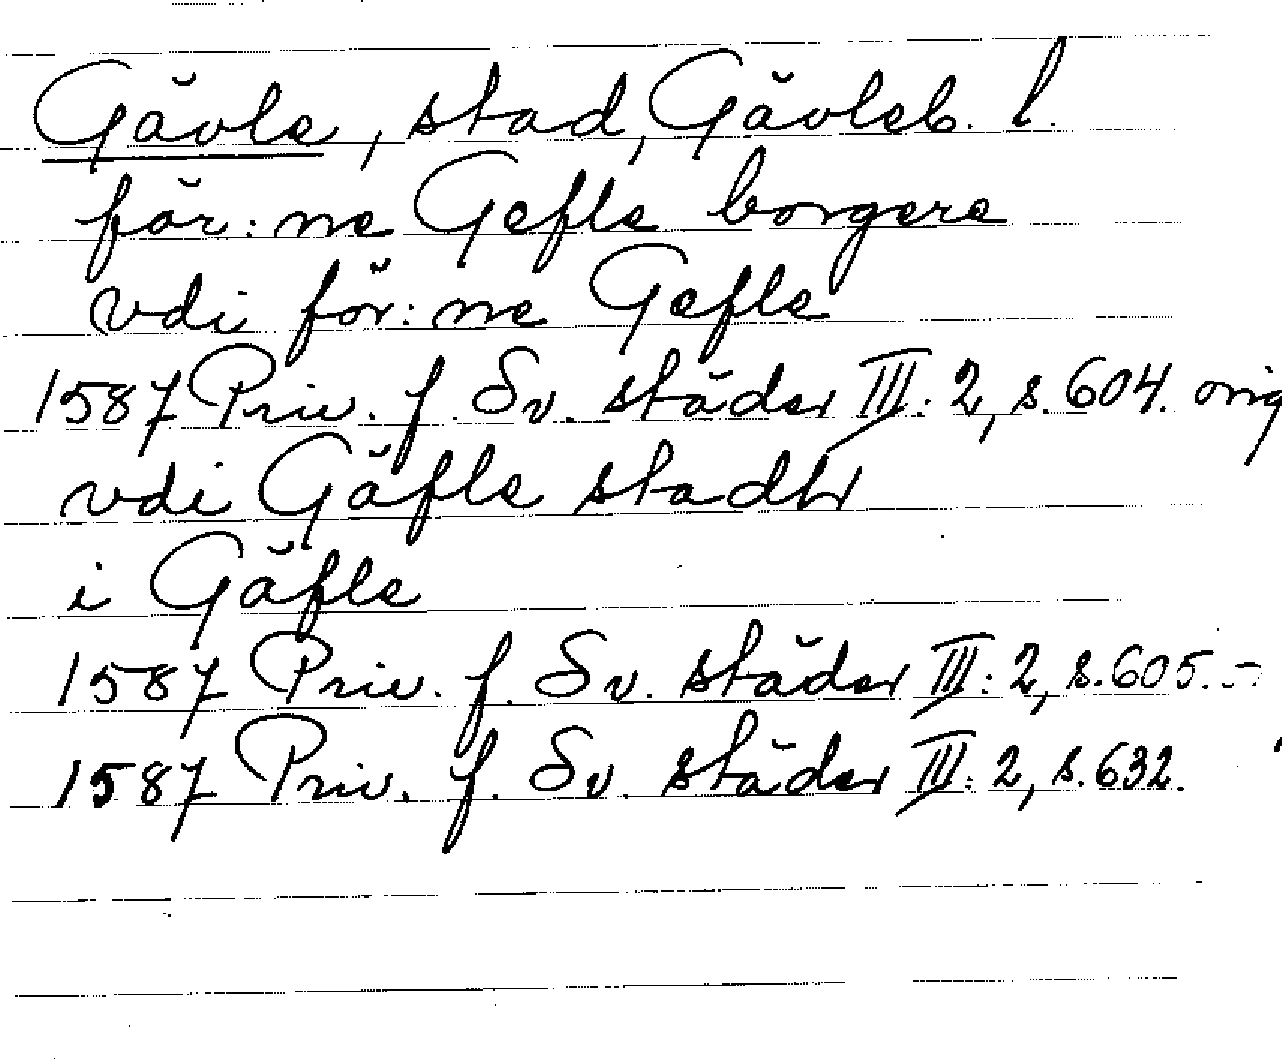 Gävle, stad, Gävleb. l.
för:ne Gefle borgere
vdi för:ne Gefle
1587 Priv. f. Sv. städer III:2, s. 604. orig
vdi Gäfle stadhz
i Gäfle
1587 Priv. f. Sv. städer III:2, s. 605. -
1587 Priv. f. Sv. städer III:2, s. 632.